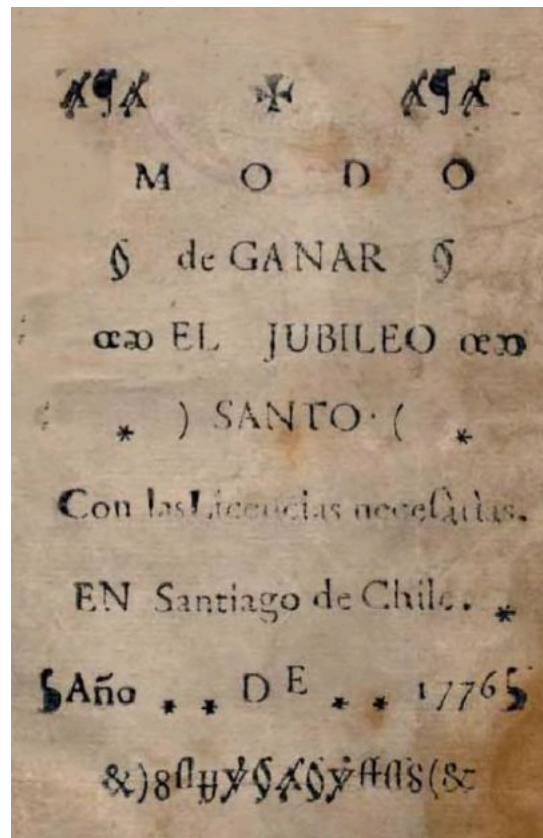 M O D O
de GANAR
EL JUBILEO
* ) SANTO· ( *
Con las Licencias necessarias.
EN Santiago de Chile. *
Año * * D E * * 1776